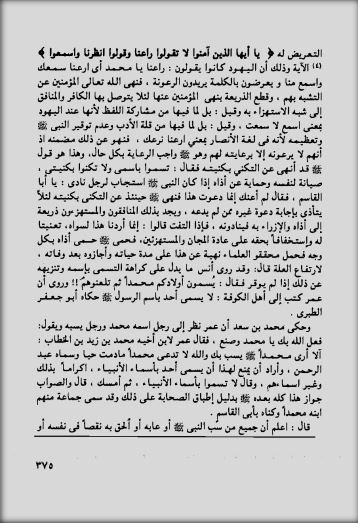 التعريض له ﴿ يا أيها الذين آمنوا لا تقولوا راعنا وقولوا انظرنا واسمعوا ﴾
(٤) الآية وذلك أن اليهود كانوا يقولون : راعنا يا محمد أى ارعنا سمعك
واسمع منا و يعرضون بالكلمة يريدون الرعونة ، فنهى الله تعالى المؤمنين عن
التشبه بهم ، وقطع الذريعة بنهى المؤمنين عنها لئلا يتوصل بها الكافر والمنافق
إلى شبه الاستهزاء به وقيل : بل لما فيها من مشاركة اللفظ لأنها عند اليهود
بمعنى اسمع لا سمعت ، وقيل : بل لما فيها من قلة الأدب وعدم توقير النبى ﷺ
وتعظيمه لأنه فى لغة الأنصار بمعنى ارعنا نرعك ، فنهو عن ذلك مضمنه اذ
أنهم لا يرعونه إلا برعايته لهم وهو ﷺ واجب الرعاية بكل حال ، وهذا هو قول
ﷺ قد أنهى عن التكنى بكنيته فقال : تسموا باسمى ولا تكنوا بكنيتى ،
صيانة لنفسه وحماية عن أذاه إذا كان النبى ﷺ استجاب لرجل نادى : يا أبا
القاسم ، فقال لم أعنك إنما دعوت هذا فنهى ﷺ حينئذ عن التكنى بكنيته لئلا
يتأذى بإجابة دعوة غيره ممن لم يدعه ، ويجد بذلك المنافقون والمستهزئون ذريعة
إلى أذاه والإزراء به فينادونه ، فإذا التفت قالوا : إنما أردنا هذا لسواه ، تعنيتا
له وإستخفافاً بحقه على عادة المجان والمستهزئين ، فحمى ﷺ حمى أذاه بكل
وجه فحمل محققو العلماء نهيه عن هذا على مدة حياته وأجازوه بعد وفاته ،
لارتفاع العلة قال : وقد روى أنس ما يدل على كراهة التسمى بإسمه وتنزيهه
عن ذلك إذا لم يوقر فقال : يُسمون أولادكم محمداً ثم تلعنونهم !! وروى أن
عمر كتب إلى أهل الكوفة : لا يسمى أحد باسم الرسول ﷺ حكاه أبو جعفر
الطبرى .
وحكى محمد بن سعد أن عمر نظر إلى رجل اسمه محمد ورجل يسبه ويقول:
فعل الله بك يا محمد وصنع ، فقال عمر لابن أخيه محمد بن زيد بن الخطاب :
ألا أرى محمداً ﷺ يسب بك والله لا تدعى محمداً مادمت حيا وسماه عبد
الرحمن ، وأراد أن يمنع لهذا أن يسمى أحد بأسماء الأنبياء ، اكراماً بذلك
وغير اسماءهم ، وقال لا تسموا بأسماء الأنبياء ، ثم أمسك ، قال والصواب
جواز هذا كله بعده ﷺ بدليل إطباق الصحابة على ذلك وقد سمى جماعة منهم
ابنه محمداً وكناه بأبى القاسم .
قال : اعلم أن جميع من سب النبى ﷺ أو عابه أو ألحق به نقصاً فى نفسه أو
٣٧٥